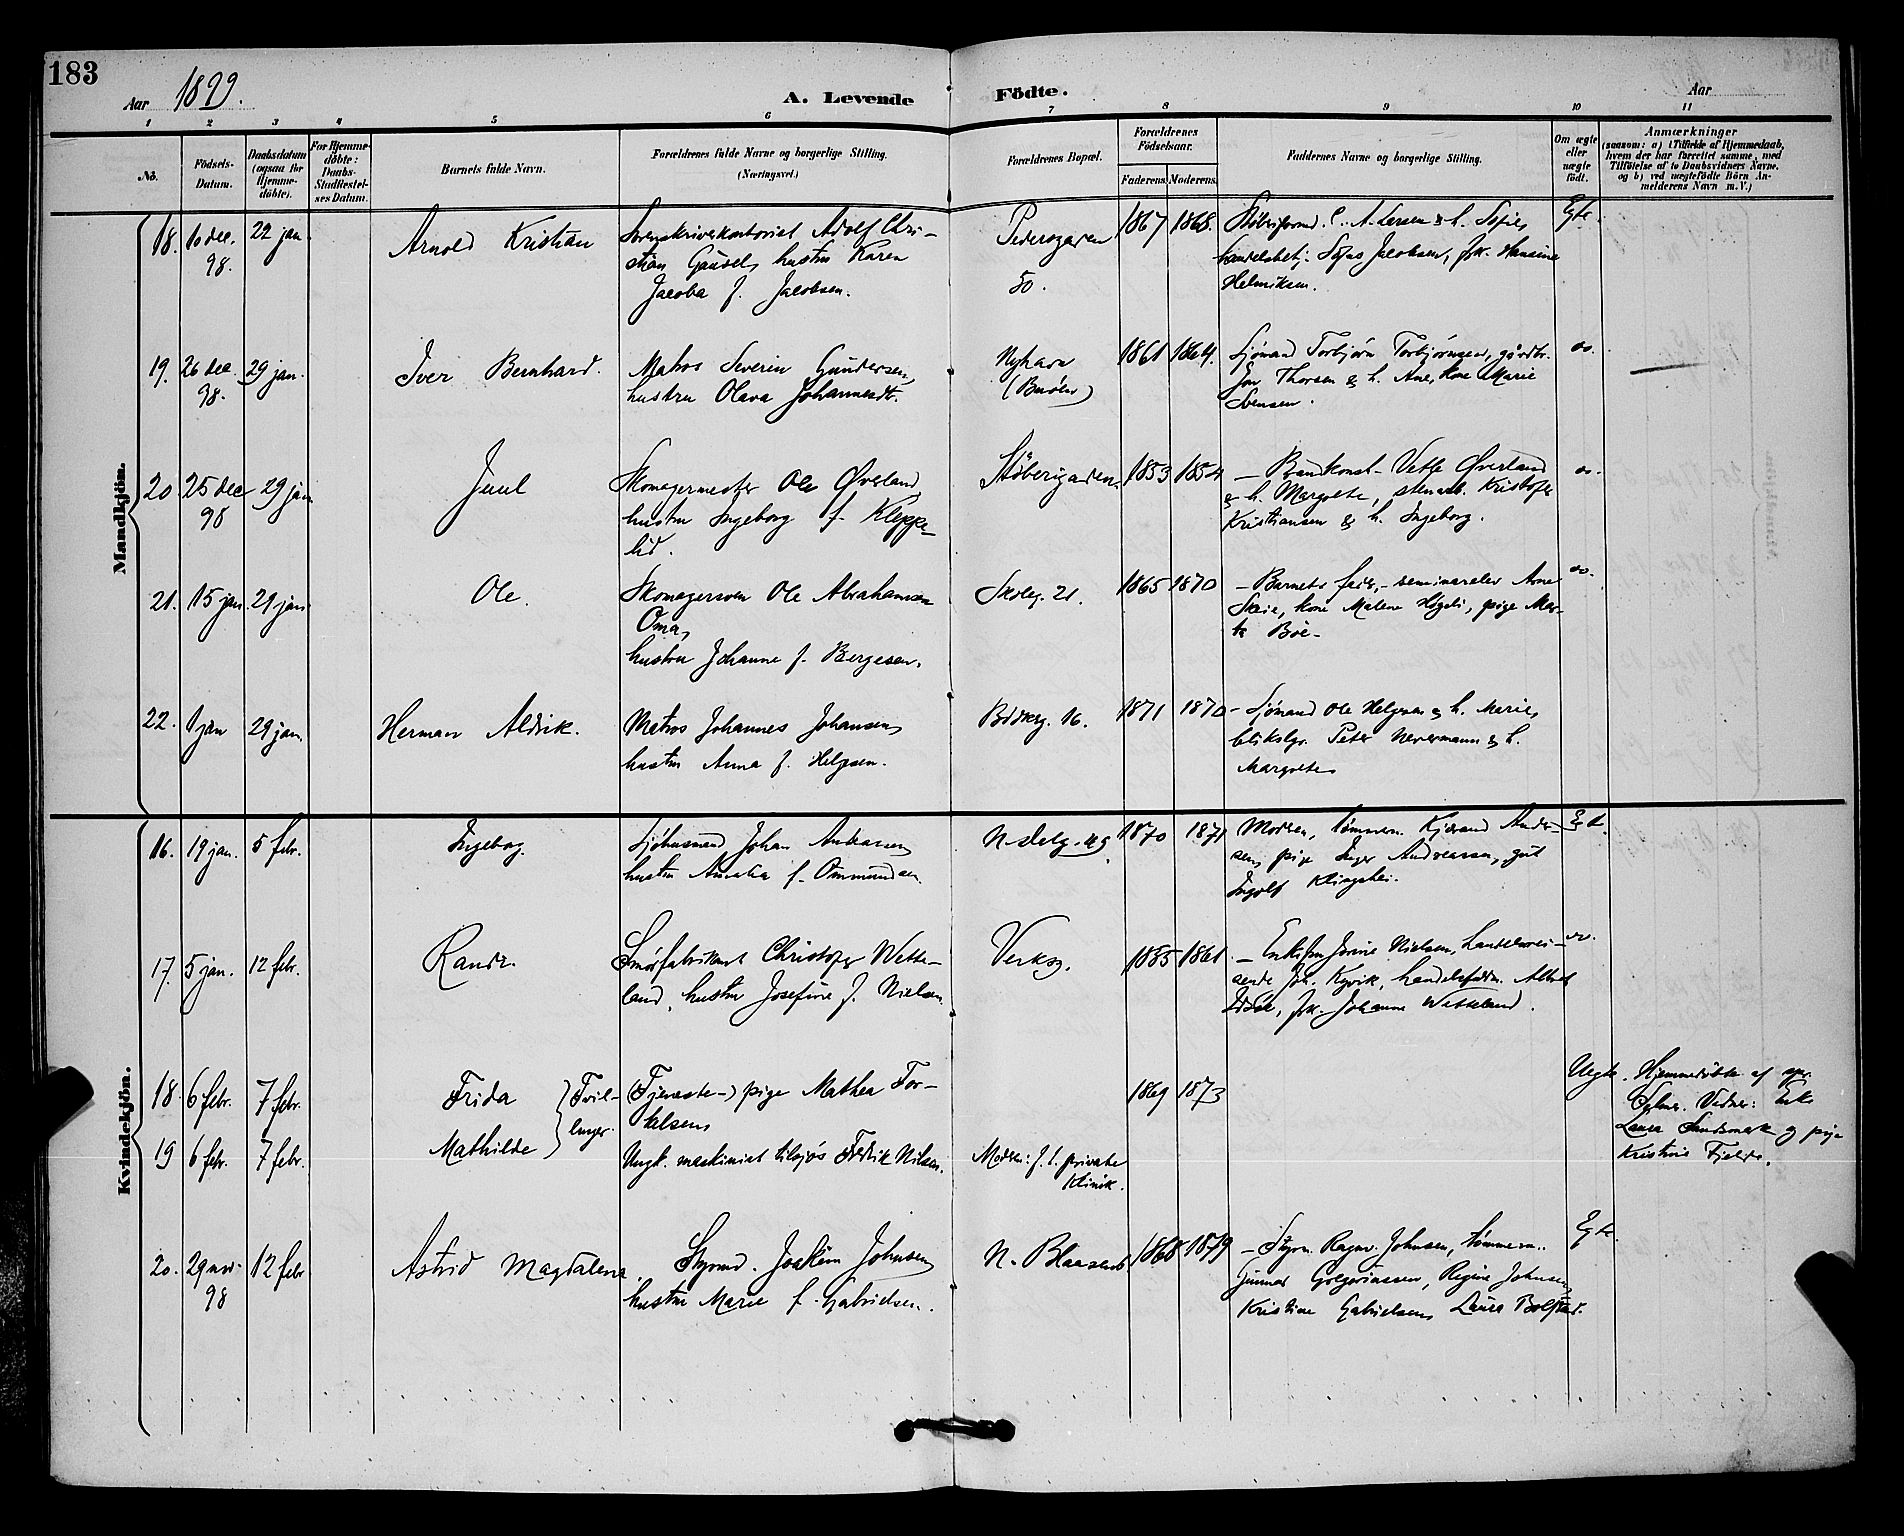 183
Aar 1899.
A. Levende Födte.
Aar
1 2 3 4 5 6 7 8 9 10 11
No.
Födsels-Datum.
Daabsdatum (ogsaa for Hjemmedöbte).
For Hjemmedöbte: Daabs-Stadfæstelses Datum.
Barnets fulde Navn.
Forældrenes fulde Navne og borgerlige Stilling. (Næringsvei.)
Forældrenes Bopæl.
Forældrenes Födselsaar.
Faderens. Moderens.
Faddernes Navne og borgerlige Stilling.
Om ægte eller uægte födt.
Anmærkninger
(saasom: a) i Tilfælde af Hjemmedaab, hvem der har forrettet samme, med Tilföielse af to Daabsvidners Navne, og b) ved uægtefödte Börn Anmelderens Navn m. V.)
Mandkjön.
18. 10 dec. 98. 22 jan.
Arnold Kristian
Sorenskriverkontorist Adolf Chri-
stian Gausel, hustru Karen
Jacoba f. Jacobsen.
Pedersgaden
50.
1867 1868.
C. A. Larsen & h. Sofie,
handelsbetj. Jacobsen, frk. Hansine
Helmiksen.
Egte.
19. 26 dec. 98. 29 jan.
Iver Bernhard.
Matros Severin Gundersen,
hustru Olava Johannesdt.
Nyhavn
(Buöen)
1861 1864.
Sjömand Torbjörn Torbjörnsen, gårdbr.
Thorsen & h. Ane, kone Marie
Svensen.
do.
20 25 dec 98 29 jan.
Juul
Skomagermester Ole Øverland,
hustru Ingeborg f. Kleppe-
lid.
Støberigaden.
1853 1854
– Vetle Øverland
& h. Margrete, Kristofer
Kristiansen & h. Ingeborg.
do.
21. 15 jan. 29 jan.
Ole.
Skomagersven Ole Abrahamsen
Oma,
hustru Johanne f. Bergesen.
Skoleg. 21.
1865 1870
– Barnets fader, – seminarelev Arne
Skeie, kone Malene Högeli, pige Mar-
ta Böe –
do.
22. 1 jan 29 jan.
Herman Aldrik.
Matros Johannes Johansen,
hustru Anna f. Helgesen.
Bödkerg. 16.
1871 1870
– Sjömand Ole Helgesen & h. Marie,
blikslgr. Peter Nevermann & h.
Margrete
Kvindekjön.
16. 19 jan. 5 febr.
Ingeborg.
Sjöhusmand Johan
hustru Amalia f. Ommundsen.
1870 1871
Moderen, tömmerm. Kjerand Ander-
sen, pige Inger Andreassen, gut
Ingolf Klingshei.
Egte.
17. 5 jan. 12 febr.
Randi.
Smörfabrikant Christofer Wette-
land, hustru Josefine f. Nielsen.
Verksg.
1855 1861
– Enkefru Jorine Nielsen, handelsrei-
sende Joh. Kyvik, Albert
frk. Johanne Wetteland.
do.
18. 6 febr. 7 febr.
19 6 febr. 7 febr.
Frida
Mathilde
Tvil-
linger.
(Tjeneste-) pige Mathea Tor-
kelsen,
Ungk. maskinist tilsjös Fredrik Nilsen.
Moderen: f. t. private
Klinik.
1869 1873
Uegte.
Hjemmedöbte af
Vidner: Enke
Laura Sandsmark og pige
Kristine Fjelde.
20. 29 nov. 98 12 febr
Astrid Magdalena.
Styrmd. Joakim Johnsen,
hustru Marie f. Gabrielsen.
N. Blaasenb.
1868 1879
– Styrm. Ragnv. Johnsen, tömmerm.
Gunnar Gregoriussen, Regine Johnsen,
Kristine Gabrielsen, Laura Bolstad.
Egte.